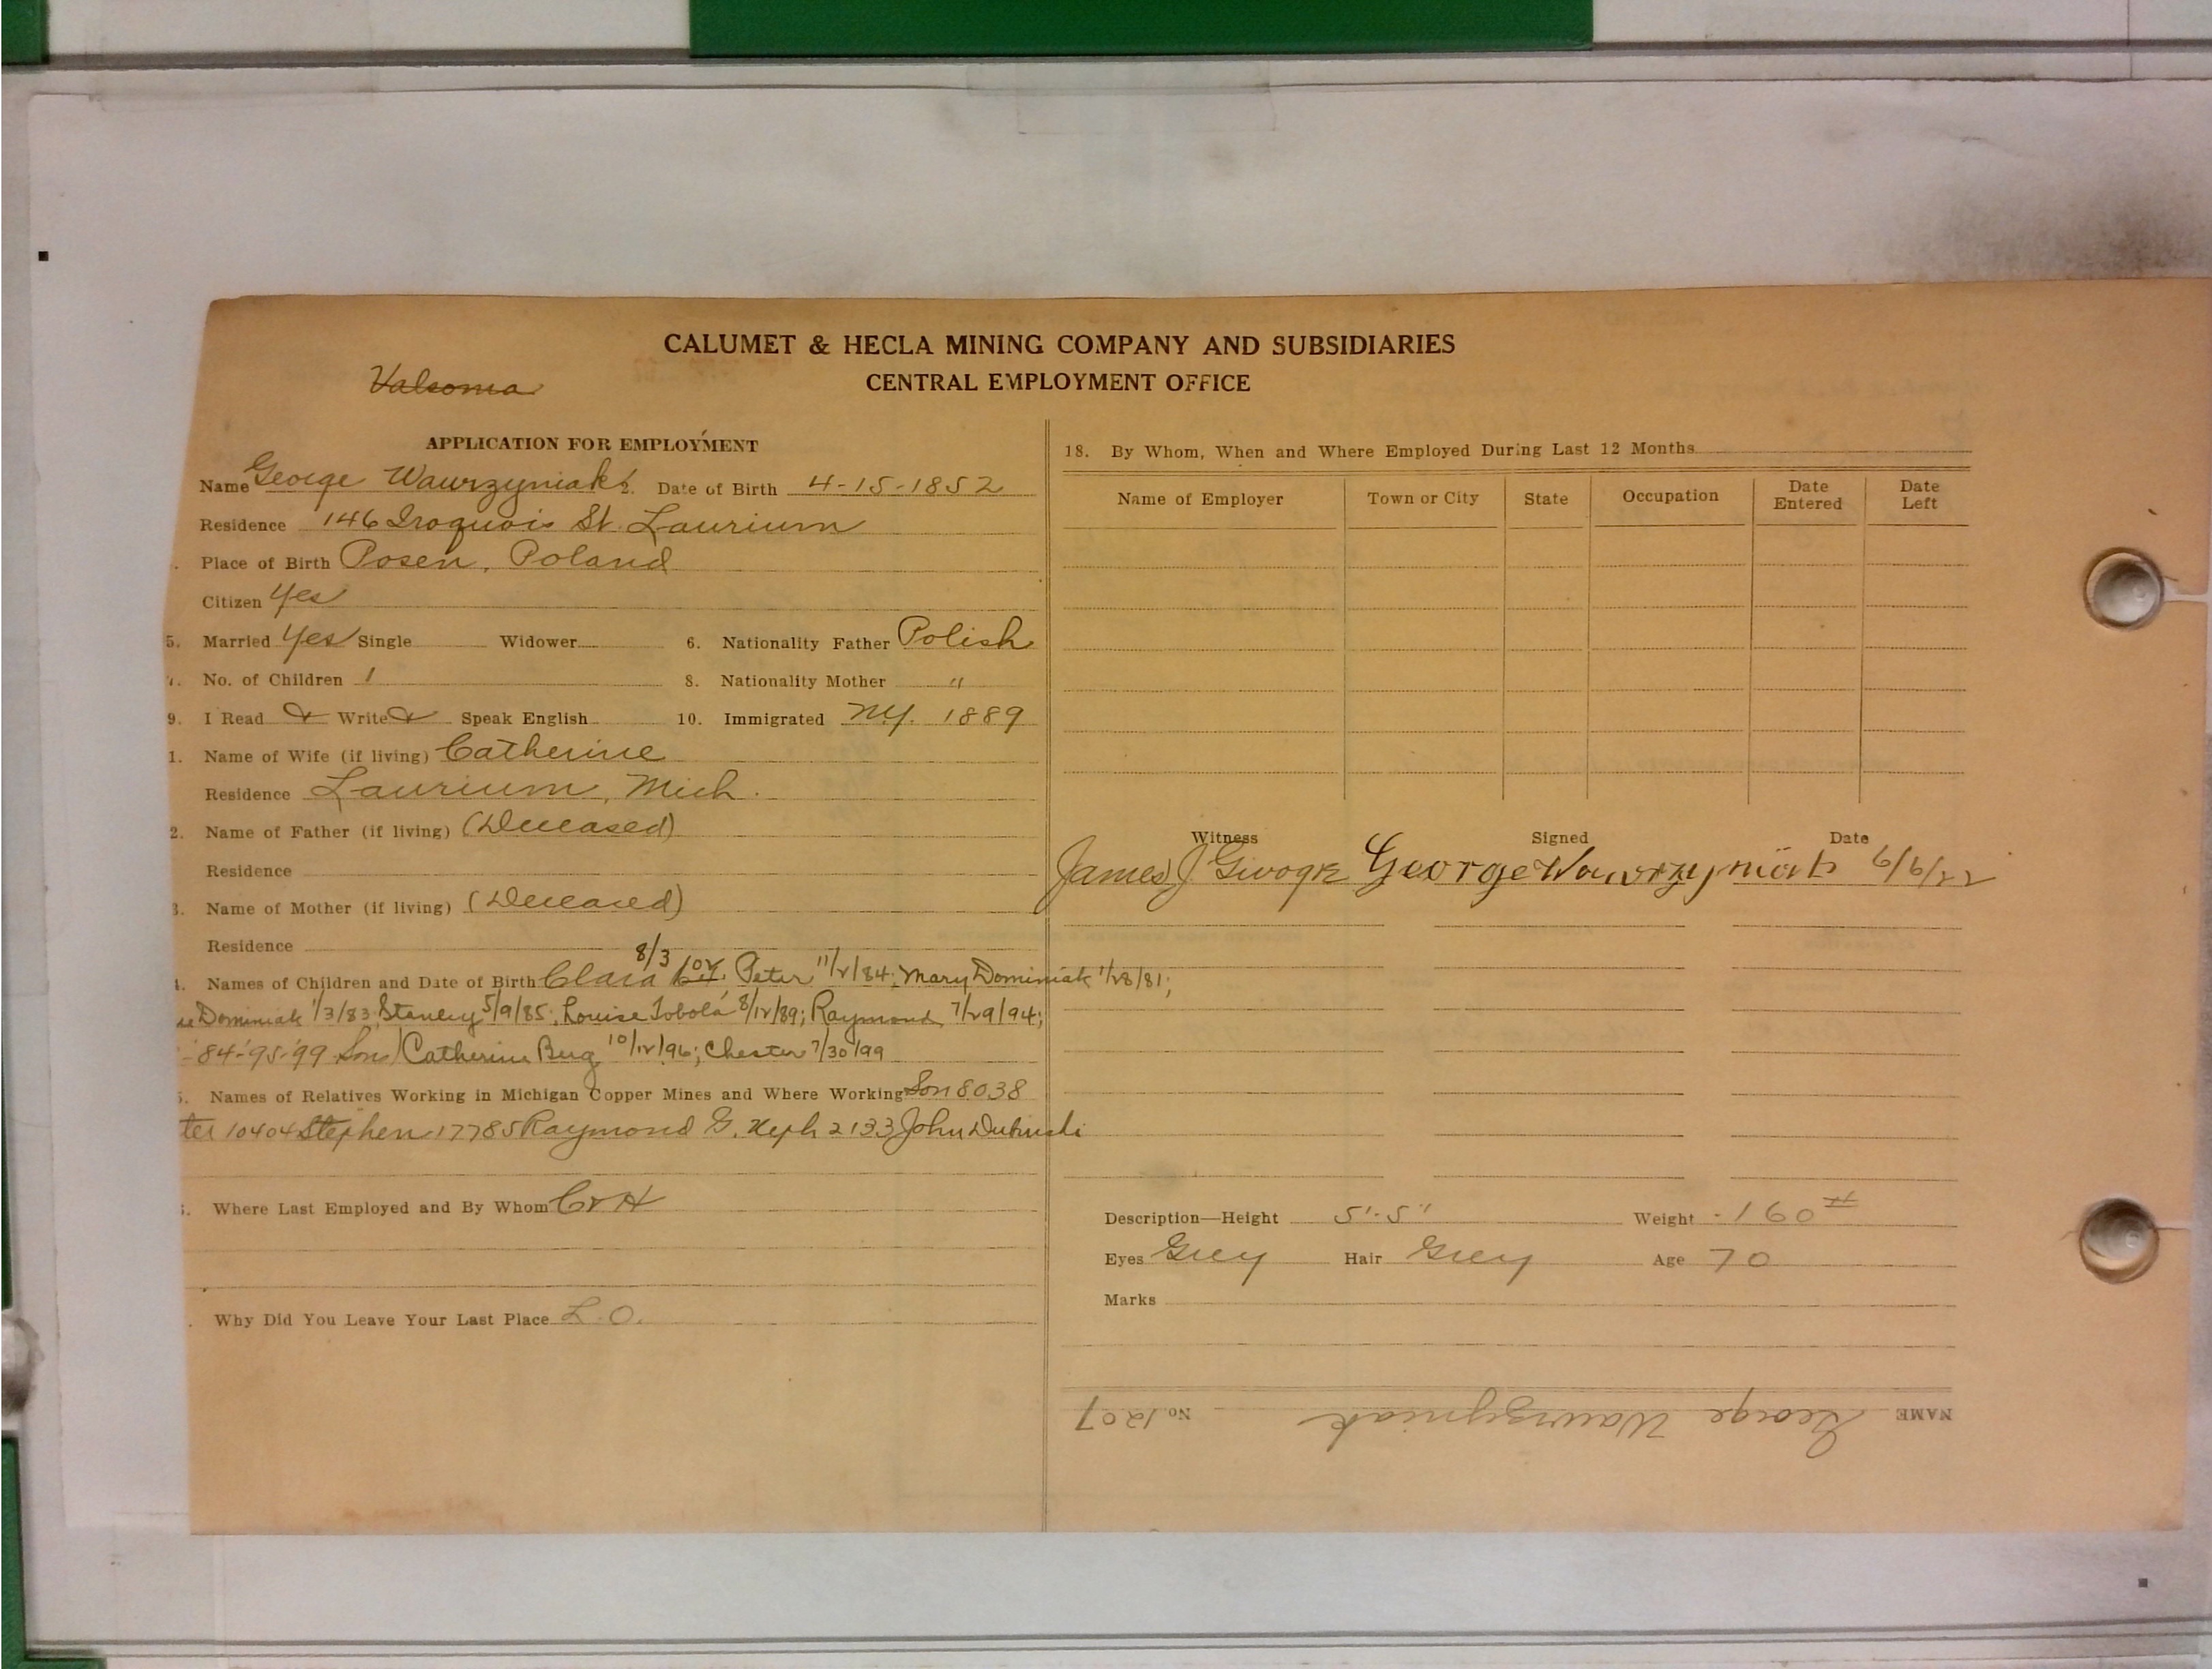 CALUMET & HECLA MINING COMPANY AND SUBSIDIARIES
CENTRAL EMPLOYMENT OFFICE
APPLICATION FOR EMPLOYMENT
Name George Wawrzyniak 2. Date of Birth 4-15-1852
Residence 146 Iroquois St. Laurium
Place of Birth Posen, Poland
Citizen Yes
5. Married Yes Single Widower 6. Nationality Father Polish
No. of Children 1 8. Nationality Mother "
9. I Read & Write & Speak English 10. Immigrated N.Y. 1889
1. Name of Wife (if living) Catherine
Residence Laurium, Mich.
2. Name of Father (if living) (Deceased)
Residence
3. Name of Mother (if living) (Deceased)
Residence
Names of Children and Date of Birth Clara 8/3 Peter 11/2/84; Mary Dominiak 1/28/81;
Dominiak 1/3/83; Stanley 5/9/85; Louise Tobola 8/12/89; Raymond 7/29/94;
-84-'95-'99 Son) Catherine Berg 10/12/96; Chester 7/30/99
Names of Relatives Working in Michigan Copper Mines and Where Working Son 8038
ter 10404 Stephen 17785 Raymond G. Neph 2133 John Dubinski
Where Last Employed and By Whom C & H
Why Did You Leave Your Last Place L.O.
18. By Whom, When and Where Employed During Last 12 Months
Name of Employer Town or City State Occupation Date Entered Date Left
Witness Signed Date
James J George Wawrzyniak 6/6/22
Description—Height 5'-5" Weight 160 #
Eyes Grey Hair Grey Age 70
Marks
NAME George Wawrzyniak No. 1207